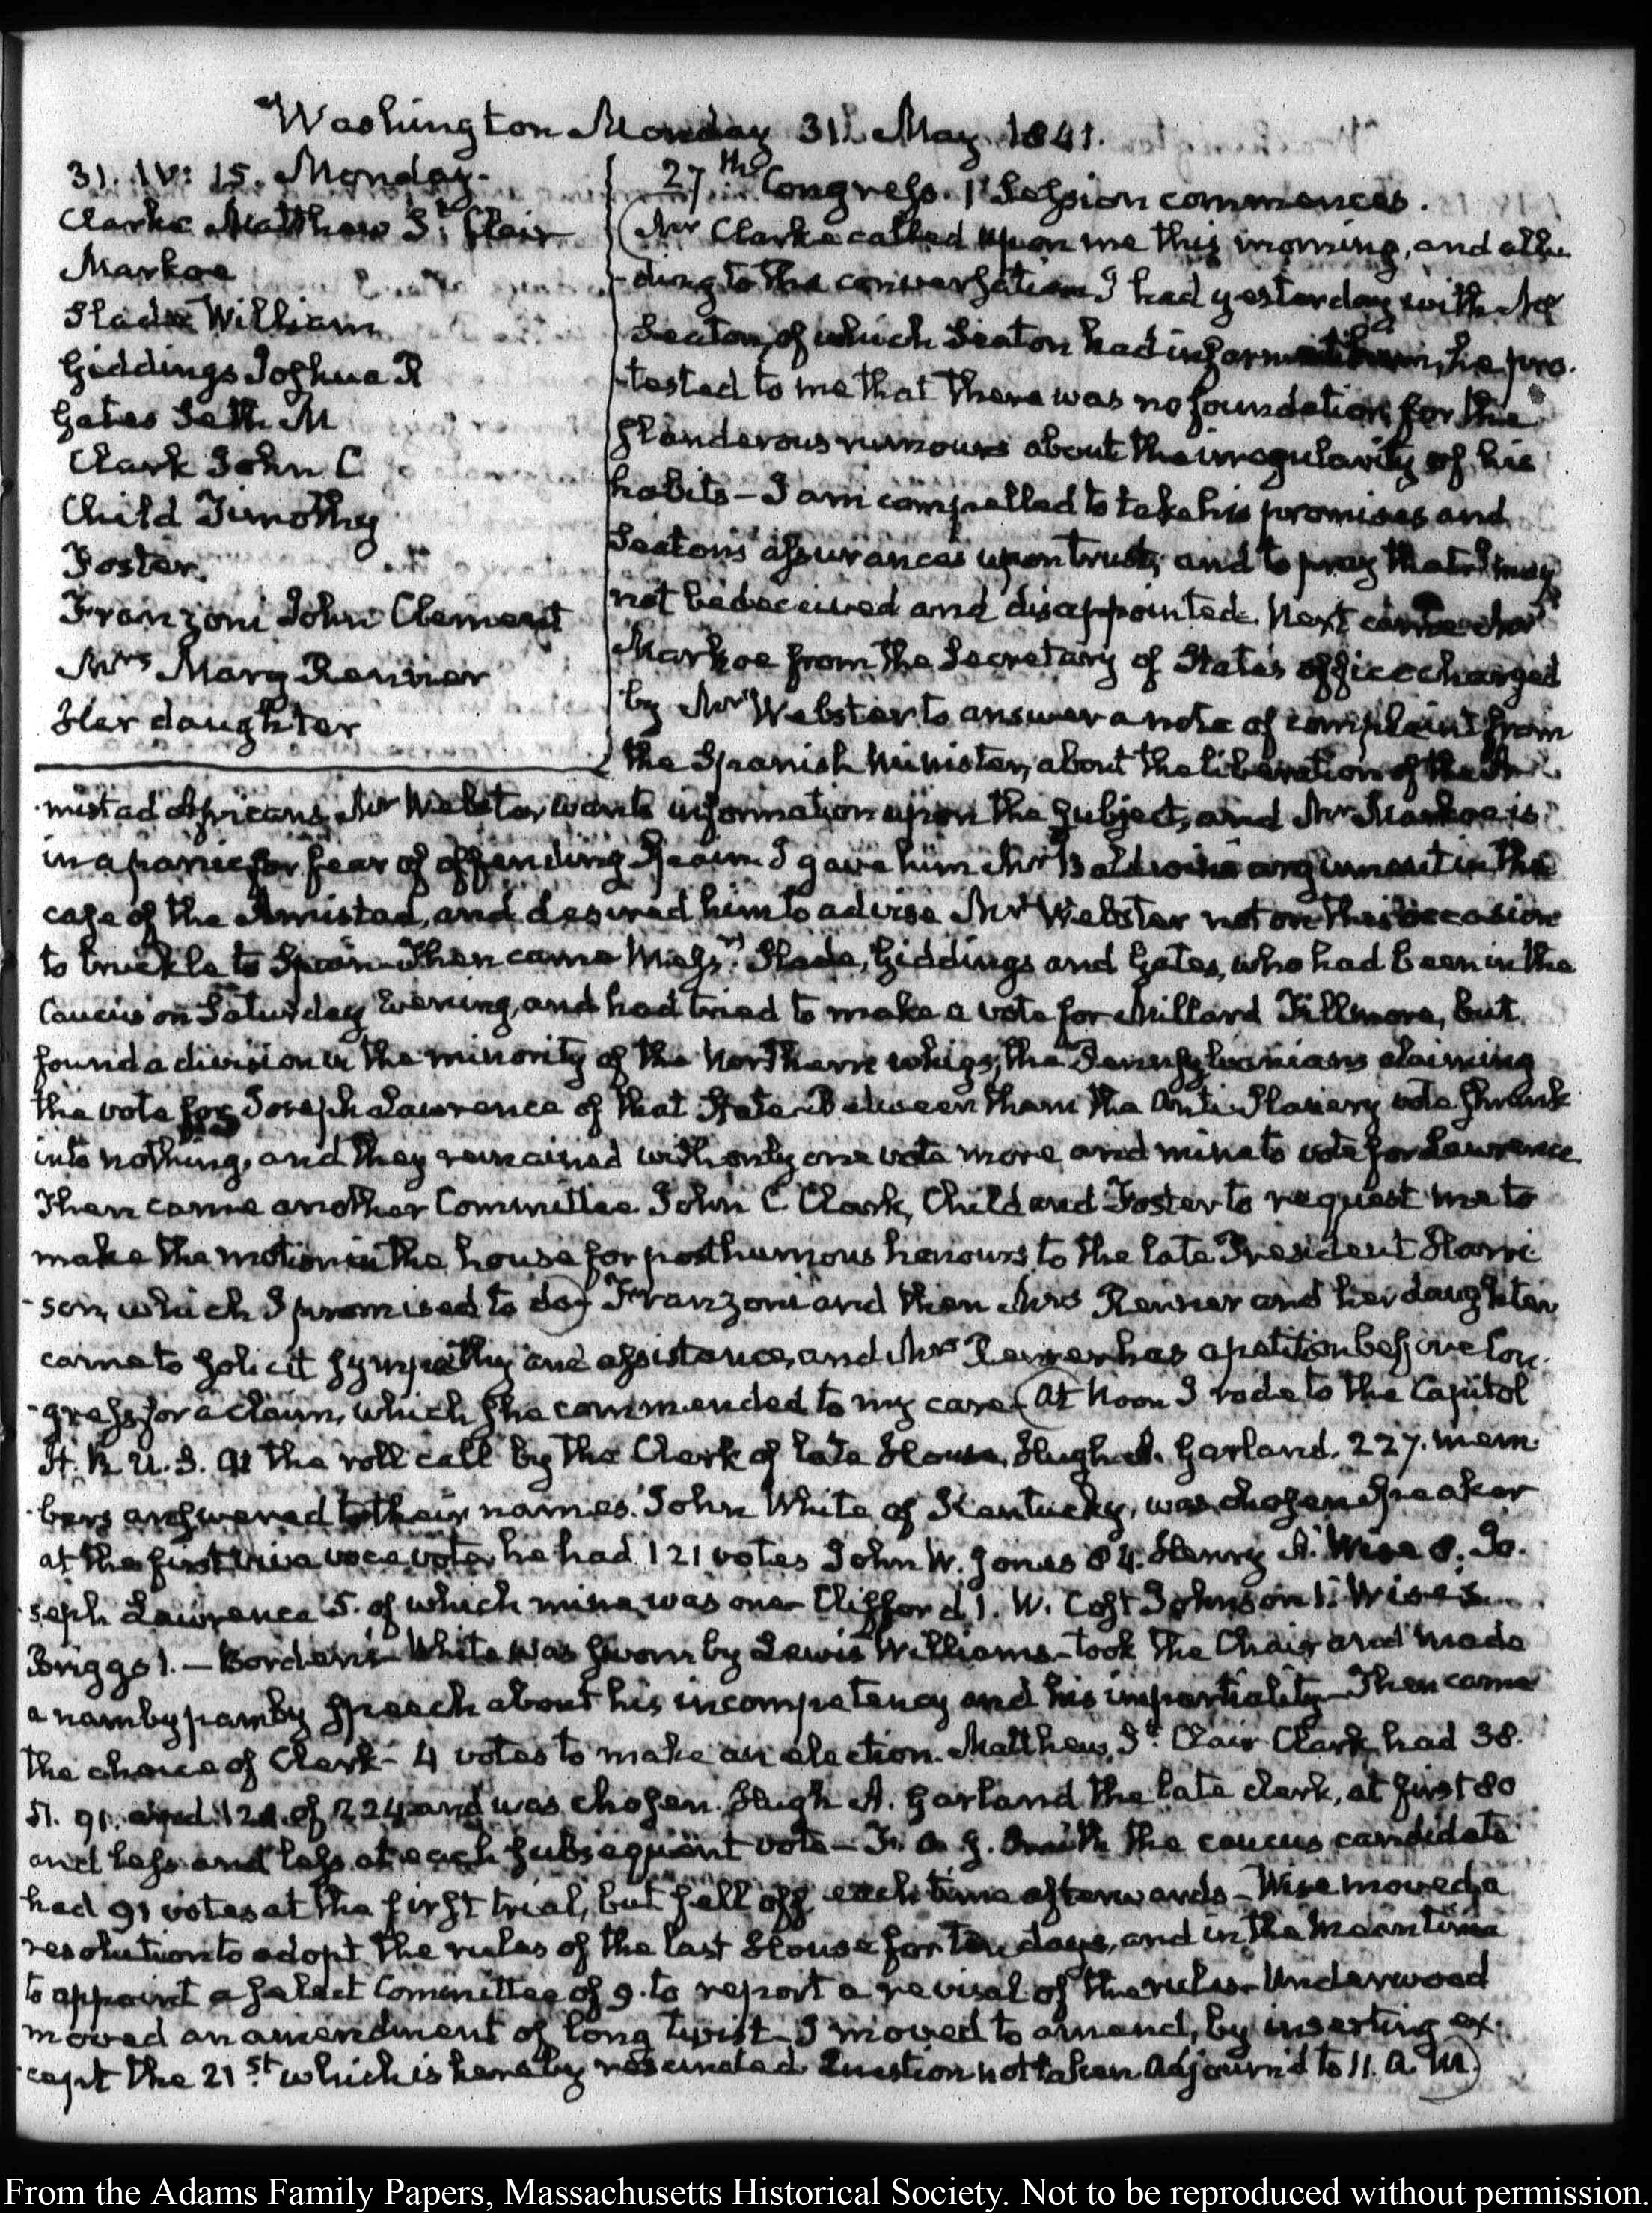 Washington Monday 31. May 1841.
31. IV: 15. Monday.
Clarke Matthew St. Clair
Markoe
Slade William
Giddings Joshua R
Gates Seth M
Clark John C
Child Timothy
Foster.
Franzoni John Clement
Mrs Mary Renner
Her daughter
27th Congress. 1st Session commences.
(Mr Clarke called upon me this morning, and allu
-ding to the conversation I had yesterday with Mr
Seaton, of which Seaton had informed him, he pro-
-tested to me that there was no foundation for the
slanderous rumours about the irregularity of his
habits – I am compelled to take his promises and
Seaton's assurances upon trust, and to pray that I may
not be deceived and disappointed. Next came Mr
Markoe from the Secretary of State's office charged
by Mr Webster to answer a note of complaint from
the Spanish Minister, about the liberation of the A
-mistad Africans. Mr Webster wants information upon the subject, and Mr Markoe is
in a panic for fear of offending Spain. I gave him Mr Baldwin's argument in the
case of the Amistad, and desired him to advise Mr Webster not on this occasion
to truckle to Spain. Then came Messrs. Slade, Giddings and Gates, who had been in the
Caucus on Saturday Evening, and had tried to make a vote for Millard Fillmore, but
found a division in the minority of the Northern whigs, the Pennsylvanians claiming
the vote for Joseph Lawrence of that State. Between them the Anti-Slavery vote shrunk
into nothing, and they remained with only one vote more and mine to vote for Lawrence.
Then came another Committee John C Clark, Child and Foster to request me to
make the motion in the house for posthumous honours to the late President Harri
-son, which I promised to do) Franzoni and then Mrs Renner and her daughter
came to solicit sympathy and assistance, and Mrs Renner has a petition before Con-
-gress for a claim, which she commended to my care. (At Noon I rode to the Capitol
H. R. U. S. At the roll call by the Clerk of late House, Hugh A. Garland. 227. mem-
-bers answered to their names. John White of Kentucky, was chosen Speaker
at the first viva voce vote, he had 121 votes John W. Jones 84. Henry A. Wise 8. Jo-
-seph Lawrence 5. of which mine was one. Clifford 1. W. Cost Johnson 1. Wise's
Briggs 1. – Borden's White was sworn by Lewis Williams – took the Chair and made
a namby pamby speech about his incompetency and his impartiality – Then came
the choice of Clerk – 4 votes to make an election. Matthew St. Clair Clark had 38.
91. and 12 of 224 and was chosen. Hugh A. Garland the late clerk, at first 80
and less and less at each subsequent vote – F. O. J. Smith the caucus candidate
had 91 votes at the first trial, but fell off each time afterwards – Wise moved a
resolution to adopt the rules of the last House for ten days, and in the mean time
to appoint a select Committee of 9. to report a revisal of the rules – Underwood
moved an amendment of long twist – I moved to amend, by inserting ex-
-cept the 21st. which is hereby rescinded Question not taken. Adjourn'd to 11. A M.)
From the Adams Family Papers, Massachusetts Historical Society. Not to be reproduced without permission.